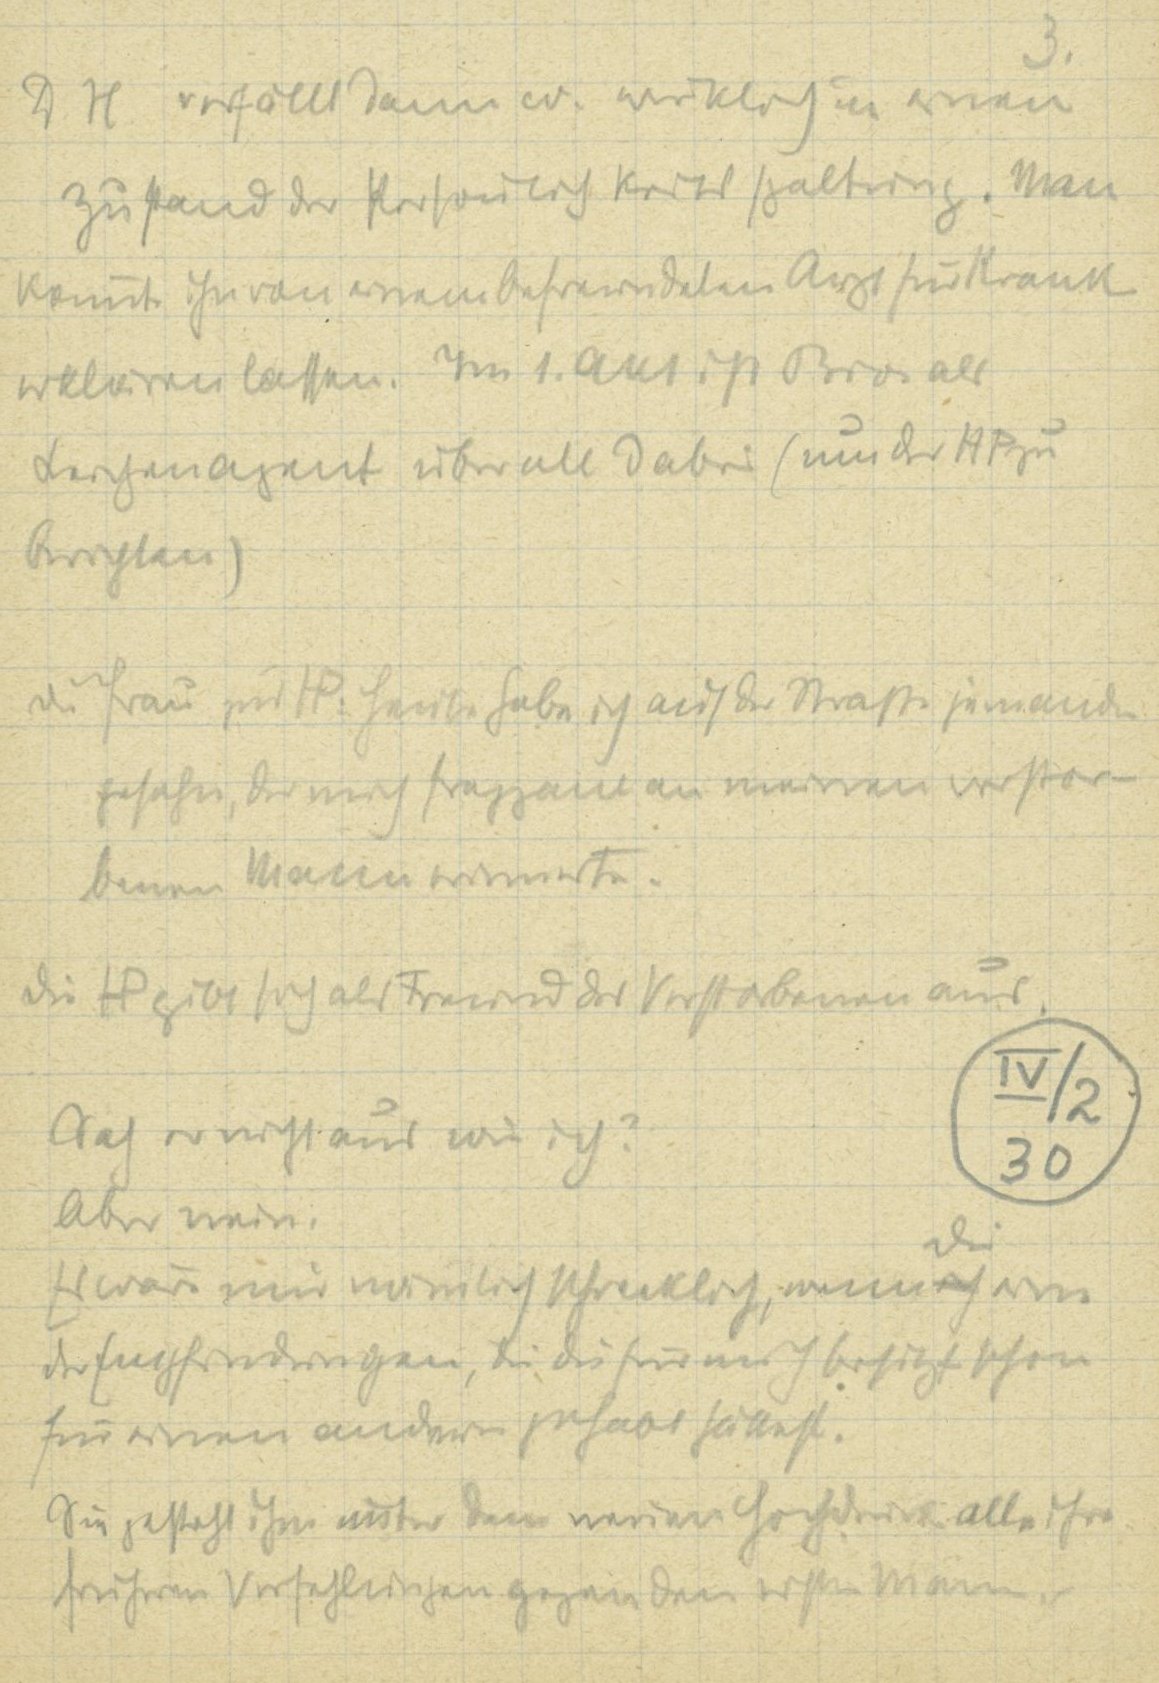 3.
D H verfällt dann ev. wirklich in einen
Zustand der Persönlichkeitsspaltung. Man
könnte ihn von einem befreundeten Arzt für krank
erklären lassen. Im 1. Akt ist als
Leichenagent überall dabei (um der HP zu
berichten)
die Frau zur HP: Heute habe ich auf der Strasse jemanden
gesehn, der mich frappant an meinen verstor-
benen Mann erinnerte.
Die HP gibt sich als Freund des Verstorbenen aus.
IV/2
30
Sah er nicht aus wie ich?
Aber nein.
die
Es wäre mir nämlich schrecklich, wenn eine
der Empfindungen, die du für mich besitzt schon
für einen andern gehabt hättest.
Sie gesteht ihm unter dem neuen alle ihre
früheren Verfehlungen gegen den ersten Mann.